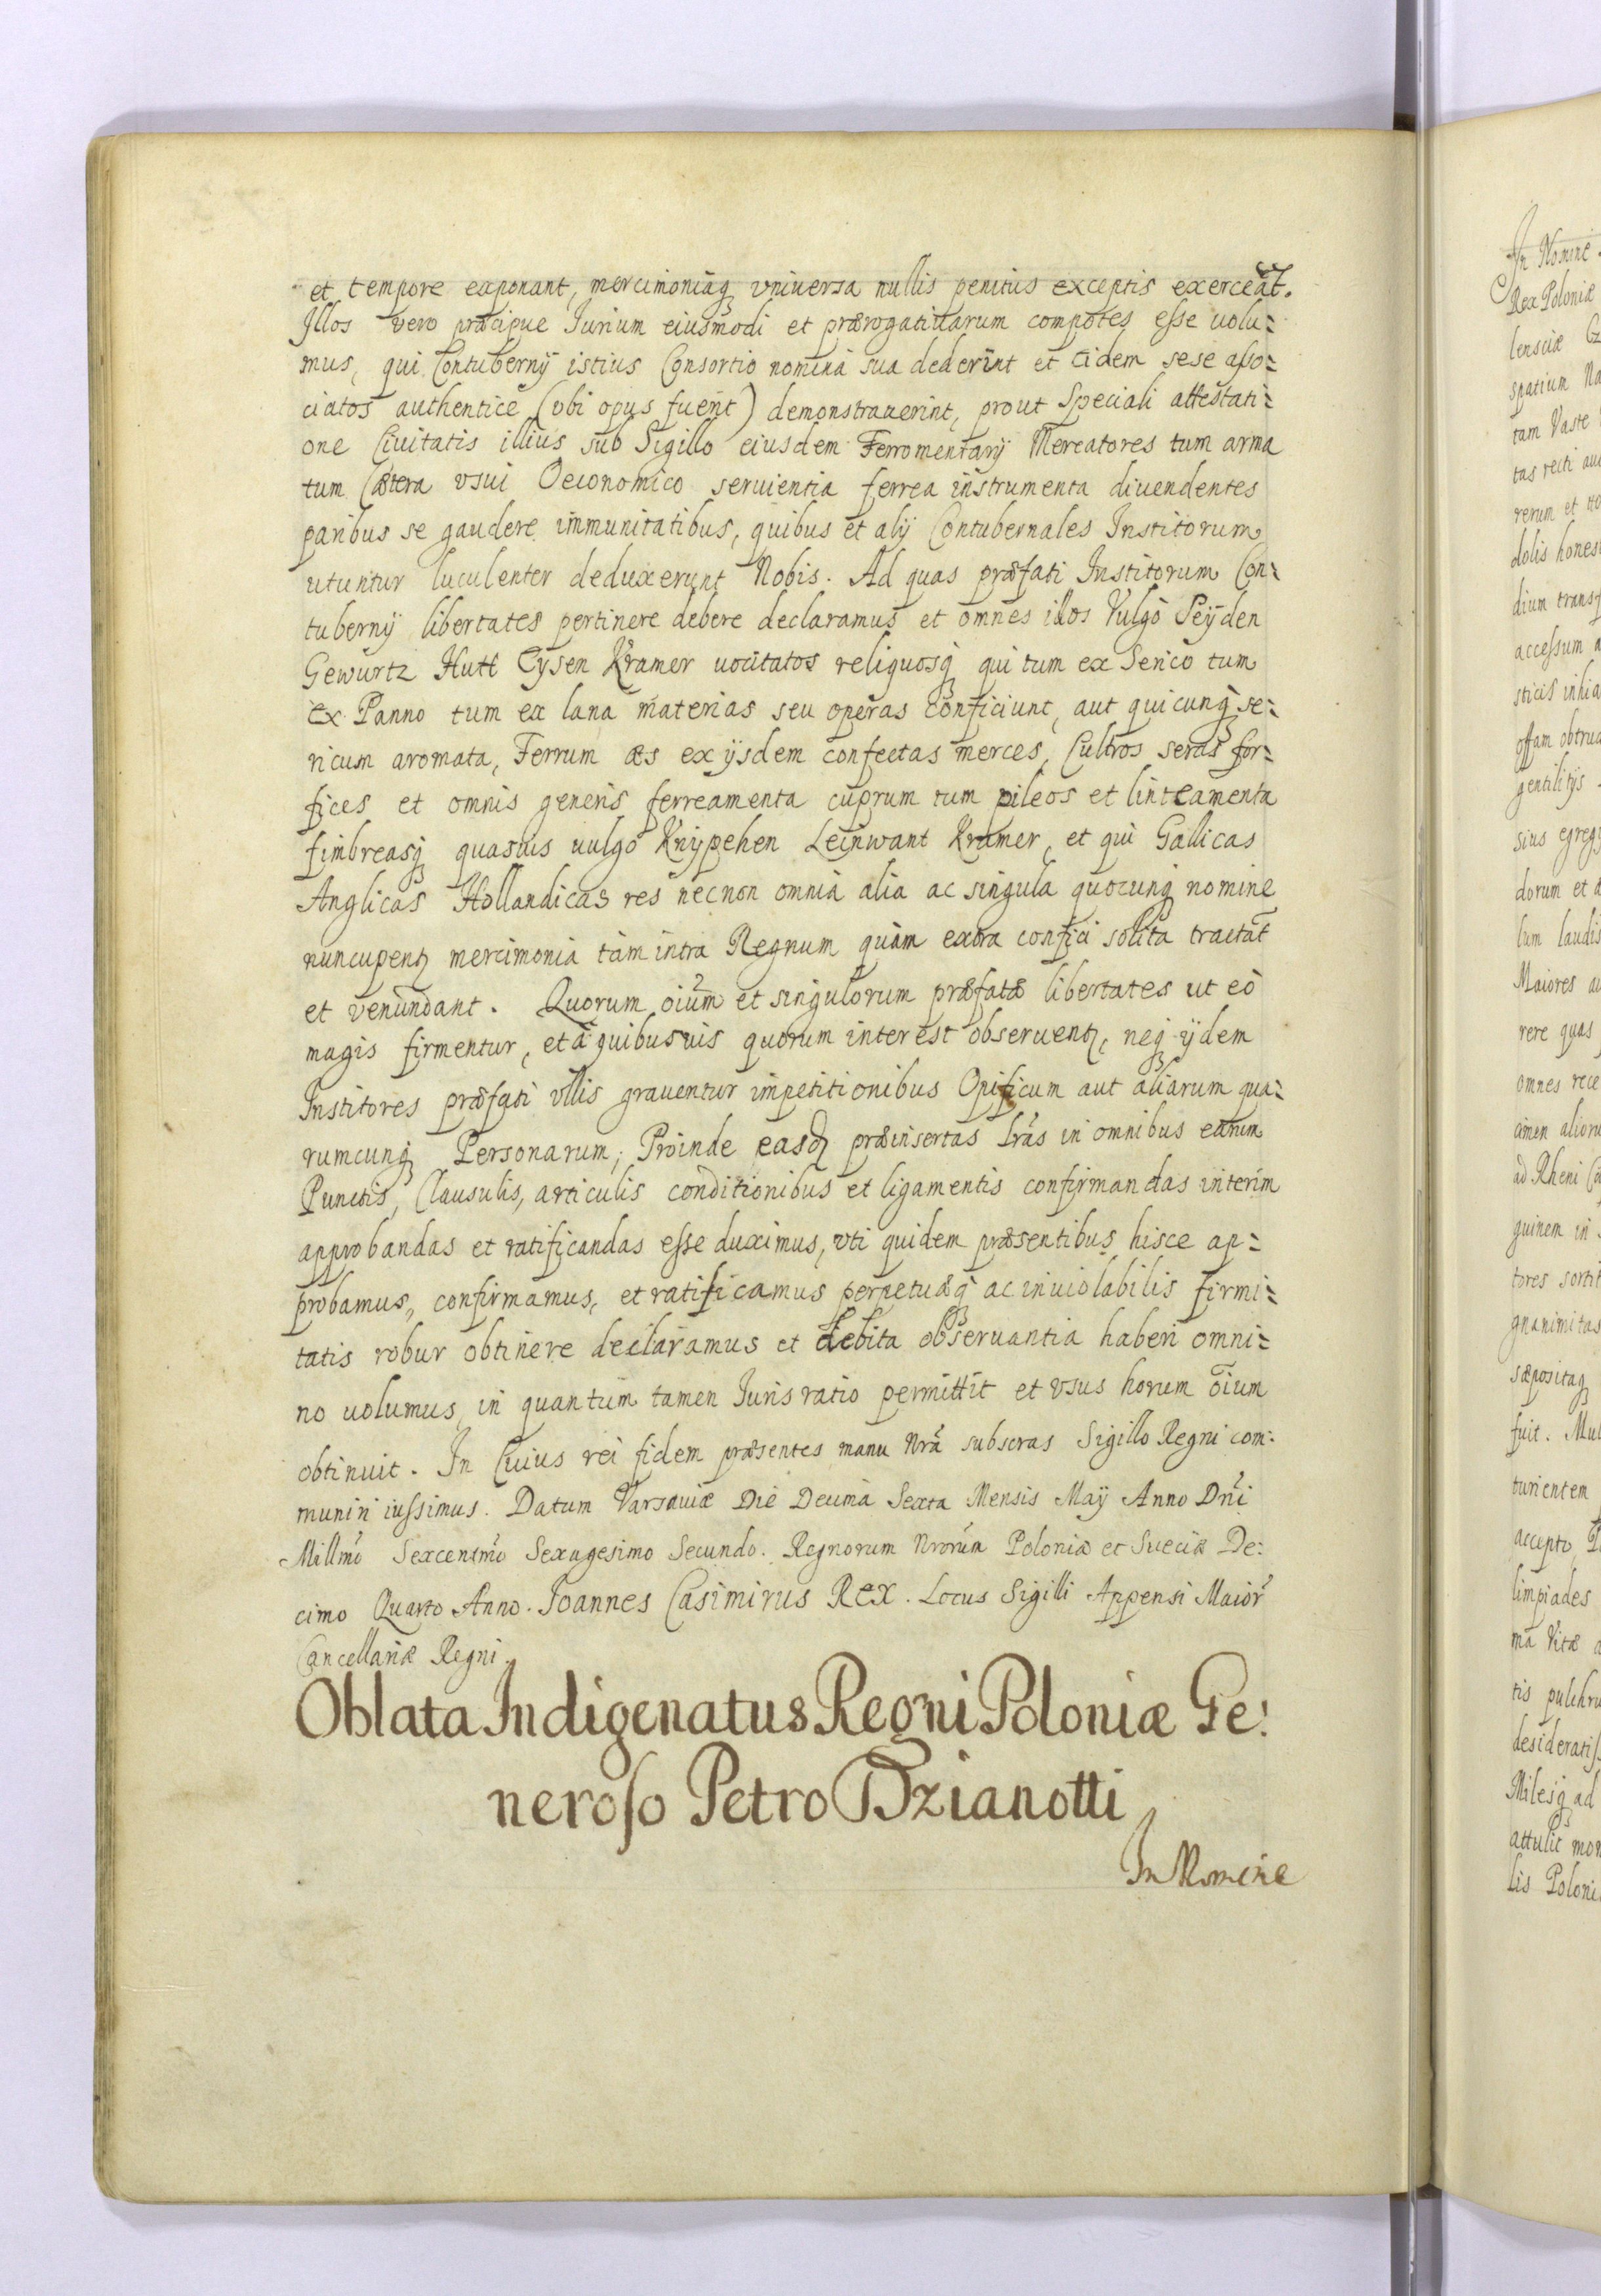 et tempore exponant, mercimoniaq́ vniuersa nullis penitus exceptis exerceāt.
Illos vero præcipue Iurium eiusmodi et prærogatiuarum compotes esse uolu=
mus, qui Contubernÿ istius Consortio nomina sua dederint et Eidem sese asso=
ciatos authentice (vbi opus fuerit) demonstrauerint, prout Speciali attestati=
one Ciuitatis illius sub Sigillo eiusdem Ferromentarÿ Mercatores tum arma
tum Cætera vsui Oeconomico seruientia ferrea instrumenta diuendentes
paribus se gaudere immunitatibus, quibus et alÿ Contubernales Institorum
utuntur luculenter deduxerunt Nobis. Ad quas præfati Institorum Con=
tubernÿ libertates pertinere debere declaramus et omnes illos Vulgò Seÿden
Gewürtz Hutt Eysen Kramer uocitatos reliquosq́ qui tum ex Serico tum
ex Panno tum ex lana materias seu operas conficiunt, aut quicunq́ se=
ricum aromata, Ferrum æs ex ÿsdem confectas merces, Cultros seras for=
fices et omnis generis ferreamenta cuprum tum pileos et linteamenta
fimbreasq́ quasuis uulgò Knÿpchen Leinwant Kramer, et qui Gallicas
Anglicas Hollandicas res necnon omnia alia ac singula quocunq́ nomine
nuncupentʒ mercimonia tàm intra Regnum quàm extra confici solita tractāt
et venundant. Quorum oiūm et singulorum præfatæ libertates ut eò
magis firmentur, et à quibusuis quorum interest obseruentʒ, neq́ ÿdem
Institores præfati vllis grauentur impetitionibus Opificum aut aliarum qua=
rumcunq́ Personarum; Proinde easdʒ præinsertas Lrãs in omnibus earum
Punctis, Clausulis, articulis conditionibus et ligamentis confirmandas interim
approbandas et ratificandas esse duximus, vti quidem præsentibus hisce ap=
probamus, confirmamus, et ratificamus perpetuæq́ ac inuiolabilis firmi=
tatis robur obtinere declaramus et debita obseruantia haberi omni=
no uolumus, in quantum tamen Iuris ratio permittit et vsus horum oīum
obtinuit. In Cuius rei fidem præsentes manu Nrã subscras Sigillo Regni com:
muniri iussimus. Datum Varsauiæ Die Decima Sexta Mensis Maÿ Anno Dñi
Millmõ Sexcentmõ Sexagesimo Secundo. Regnorum Nrorũm Poloniæ et Sueciæ De:
cimo Quarto Anno. Ioannes Casimirus Rex. Locus Sigilli Appensi Maior̃
Cancellariæ Regni.
Oblata Indigenatus Regni Poloniæ Ge:
neroso Petro Dzianotti
In Nomine